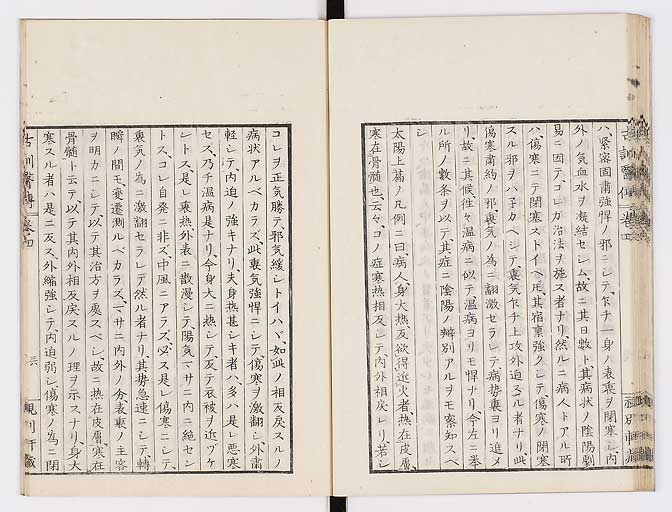 ハ、緊密固肅強悍ノ邪ニシテ、乍チ一身ノ表裏ヲ閉塞シ、内
外ノ気血水ヲ凝結セシム、故ニ其日数ト、其病状ノ陰陽劇
易ニ因テ、コレガ治法ヲ施ス者ナリ、然ルニ病人トアル所
ハ、傷寒ニテ閉塞ストイヘ𪜈、其宿裏強クシテ、傷寒ノ閉塞
スル邪ヲハ子カヘシテ、裏気乍チ上攻外迫スル者ナリ、此
傷寒肅約ノ邪、裏気ノ為ニ翻激セラレテ、病勢裏ヨリ進メ
リ、故ニ其候往々温病ニ似テ、温病ヨリモ悍ナリ、今左ニ挙
ル所ノ数条ヲ以テ、其症ニ陰陽ノ辨別アルヲモ察知スベ
シ
太陽上篇ノ凡例ニ曰、病人、身大熱、反欲得近火者、熱在皮膚、
寒在骨髄也、云々、コノ症寒熱相反シテ、内外相戻レリ、若シ
コレヲ正気勝テ、邪気緩シトイハヾ、如此ノ相反戻スルノ
病状アルベカラズ、此裏気強悍ニシテ、傷寒ヲ激翻シ、外肅
軽シテ、内迫ノ強キナリ、夫身熱甚シキ者ハ、多ハ是レ悪寒
セズ、乃チ温病是ナリ、今身大ニ熱シテ、反テ衣被ヲ近ヅケ
ントス、是レ裏熱外表ニ散漫シテ、陽気マサニ内ニ絶セン
トス、コレ自発ニ非ズ、中風ニアラズ、必ス是レ傷寒ニシテ、
裏気ノ為ニ激翻セラレテ然ル者ナリ、其勢急速ニシテ、轉
瞬ノ間モ変遷測ルベカラズ、マサニ内外ノ分、表裏ノ主客
ヲ明カニシテ、以テ其治方ヲ処スベシ、故ニ熱在皮膚、寒在
骨髄ト云テ、以テ其内外相反戻スルノ理ヲ示スナリ、身大
寒スル者ハ是ニ反ス、外縮強シテ、内迫弱シ、傷寒ノ為ニ閉
古訓醫傳 卷四
三